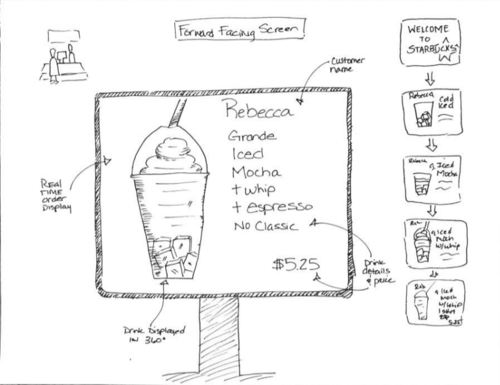 Forward Facing Screen
Customer
name
Rebecca
Grande
Iced
Mocha
+ whip
+ espresso
No Classic
$5.25
Real
Time
order
Display
Drink Displayed
in 360°
Drink
details
& price
WELCOME
TO
STARBUCKS
Rebecca
Cold
Iced
Rebecca
Iced
Mocha
Iced
w/whip
Iced
w/whip
5.25